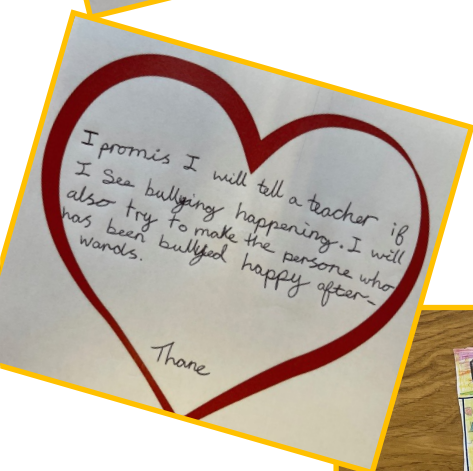 I promis I will tell a teacher if
I See bullying happening. I will
also try to make the persone who
has been bullyed happy after-
wands.
Thane